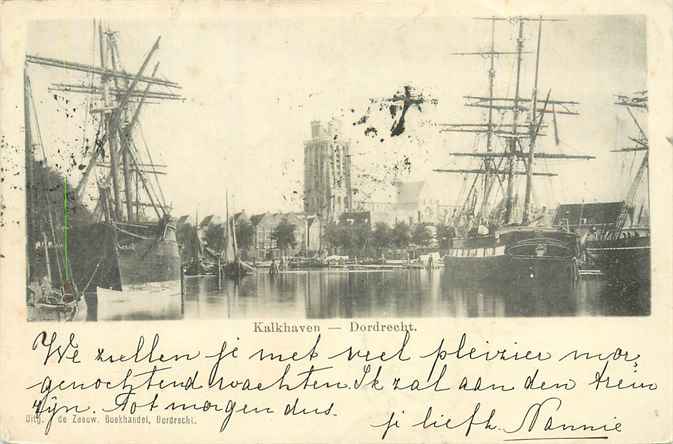 Kalkhaven — Dordrecht.
We zullen je met veel pleizier mor-
genochtend wachten. Ik zal aan den trein
zijn. Tot morgen dus.
Uitg. de Zeeuw. Boekhandel, Dordrecht.
je liefh. Nannie